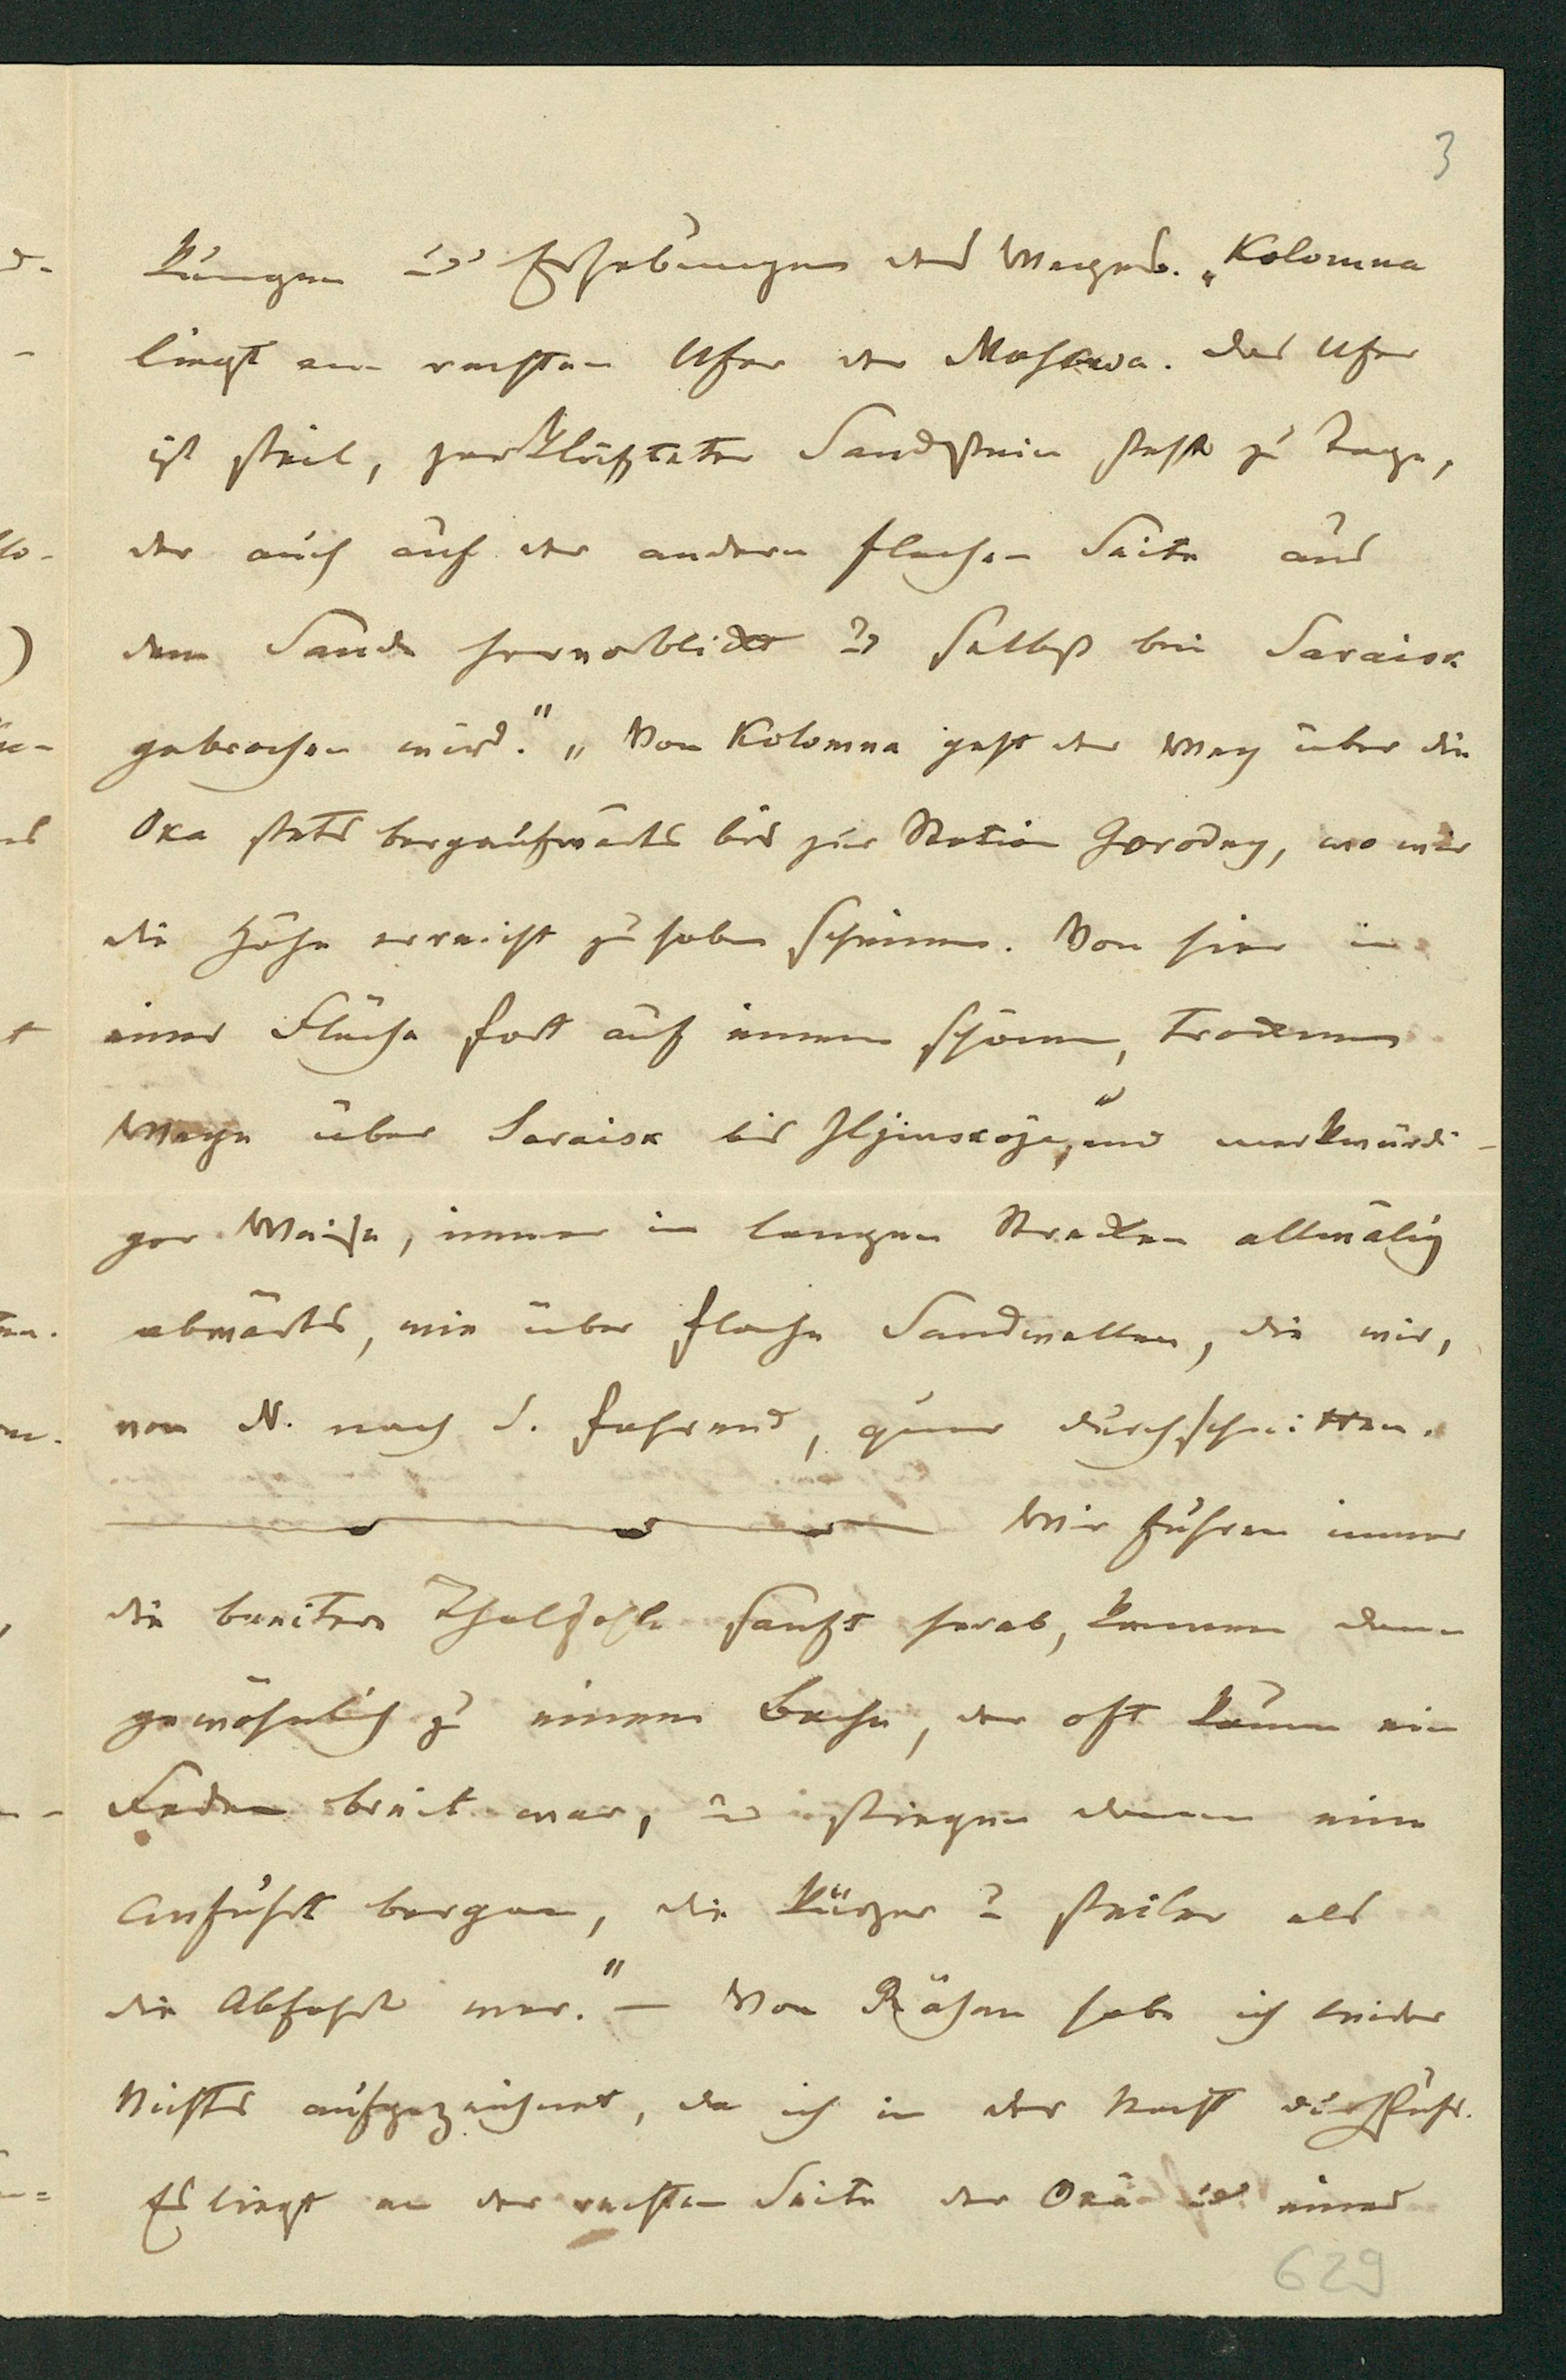 3
kungen u Erhebungen des Weges. „Kolomna
liegt am rechten Ufer der Moskwa. Das Ufer
ist steil, zerklüfteter Sandstein steht zu Tage,
der auch auf der andern flachen Seite aus
dem Sande hervorblickt u selbst bei Saraisk
gebrochen wird." „Von Kolomna geht der Weg über die
Oka stets bergaufwärts bis zur Station Gorodny, wo wir
die Höhe erreicht zu haben scheinen. Von hier in
einer Fläche fort auf einem schönen, trocknen
Wege über Saraisk bis Iljinskoje, und merkwürdi-
ger Weise, immer in langen Strecken allmälig
abwärts, wie über flache Sandwellen, die wir,
von N. nach S. fahrend, quer durchschnitten.
Wir fuhren immer
die breitere Thalsohle sanft herab, kamen dann
gewöhnlich zu einem Bache, der oft kaum ein
Faden breit war, u stiegen dann eine
Anfuhrt bergan, die kürzer u steiler als
die Abfahrt war." – Von Räsan habe ich leider
Nichts aufgezeichnet, da ich in der Nacht durchfuhr.
Es liegt an der rechten Seite der Oka u einer
629